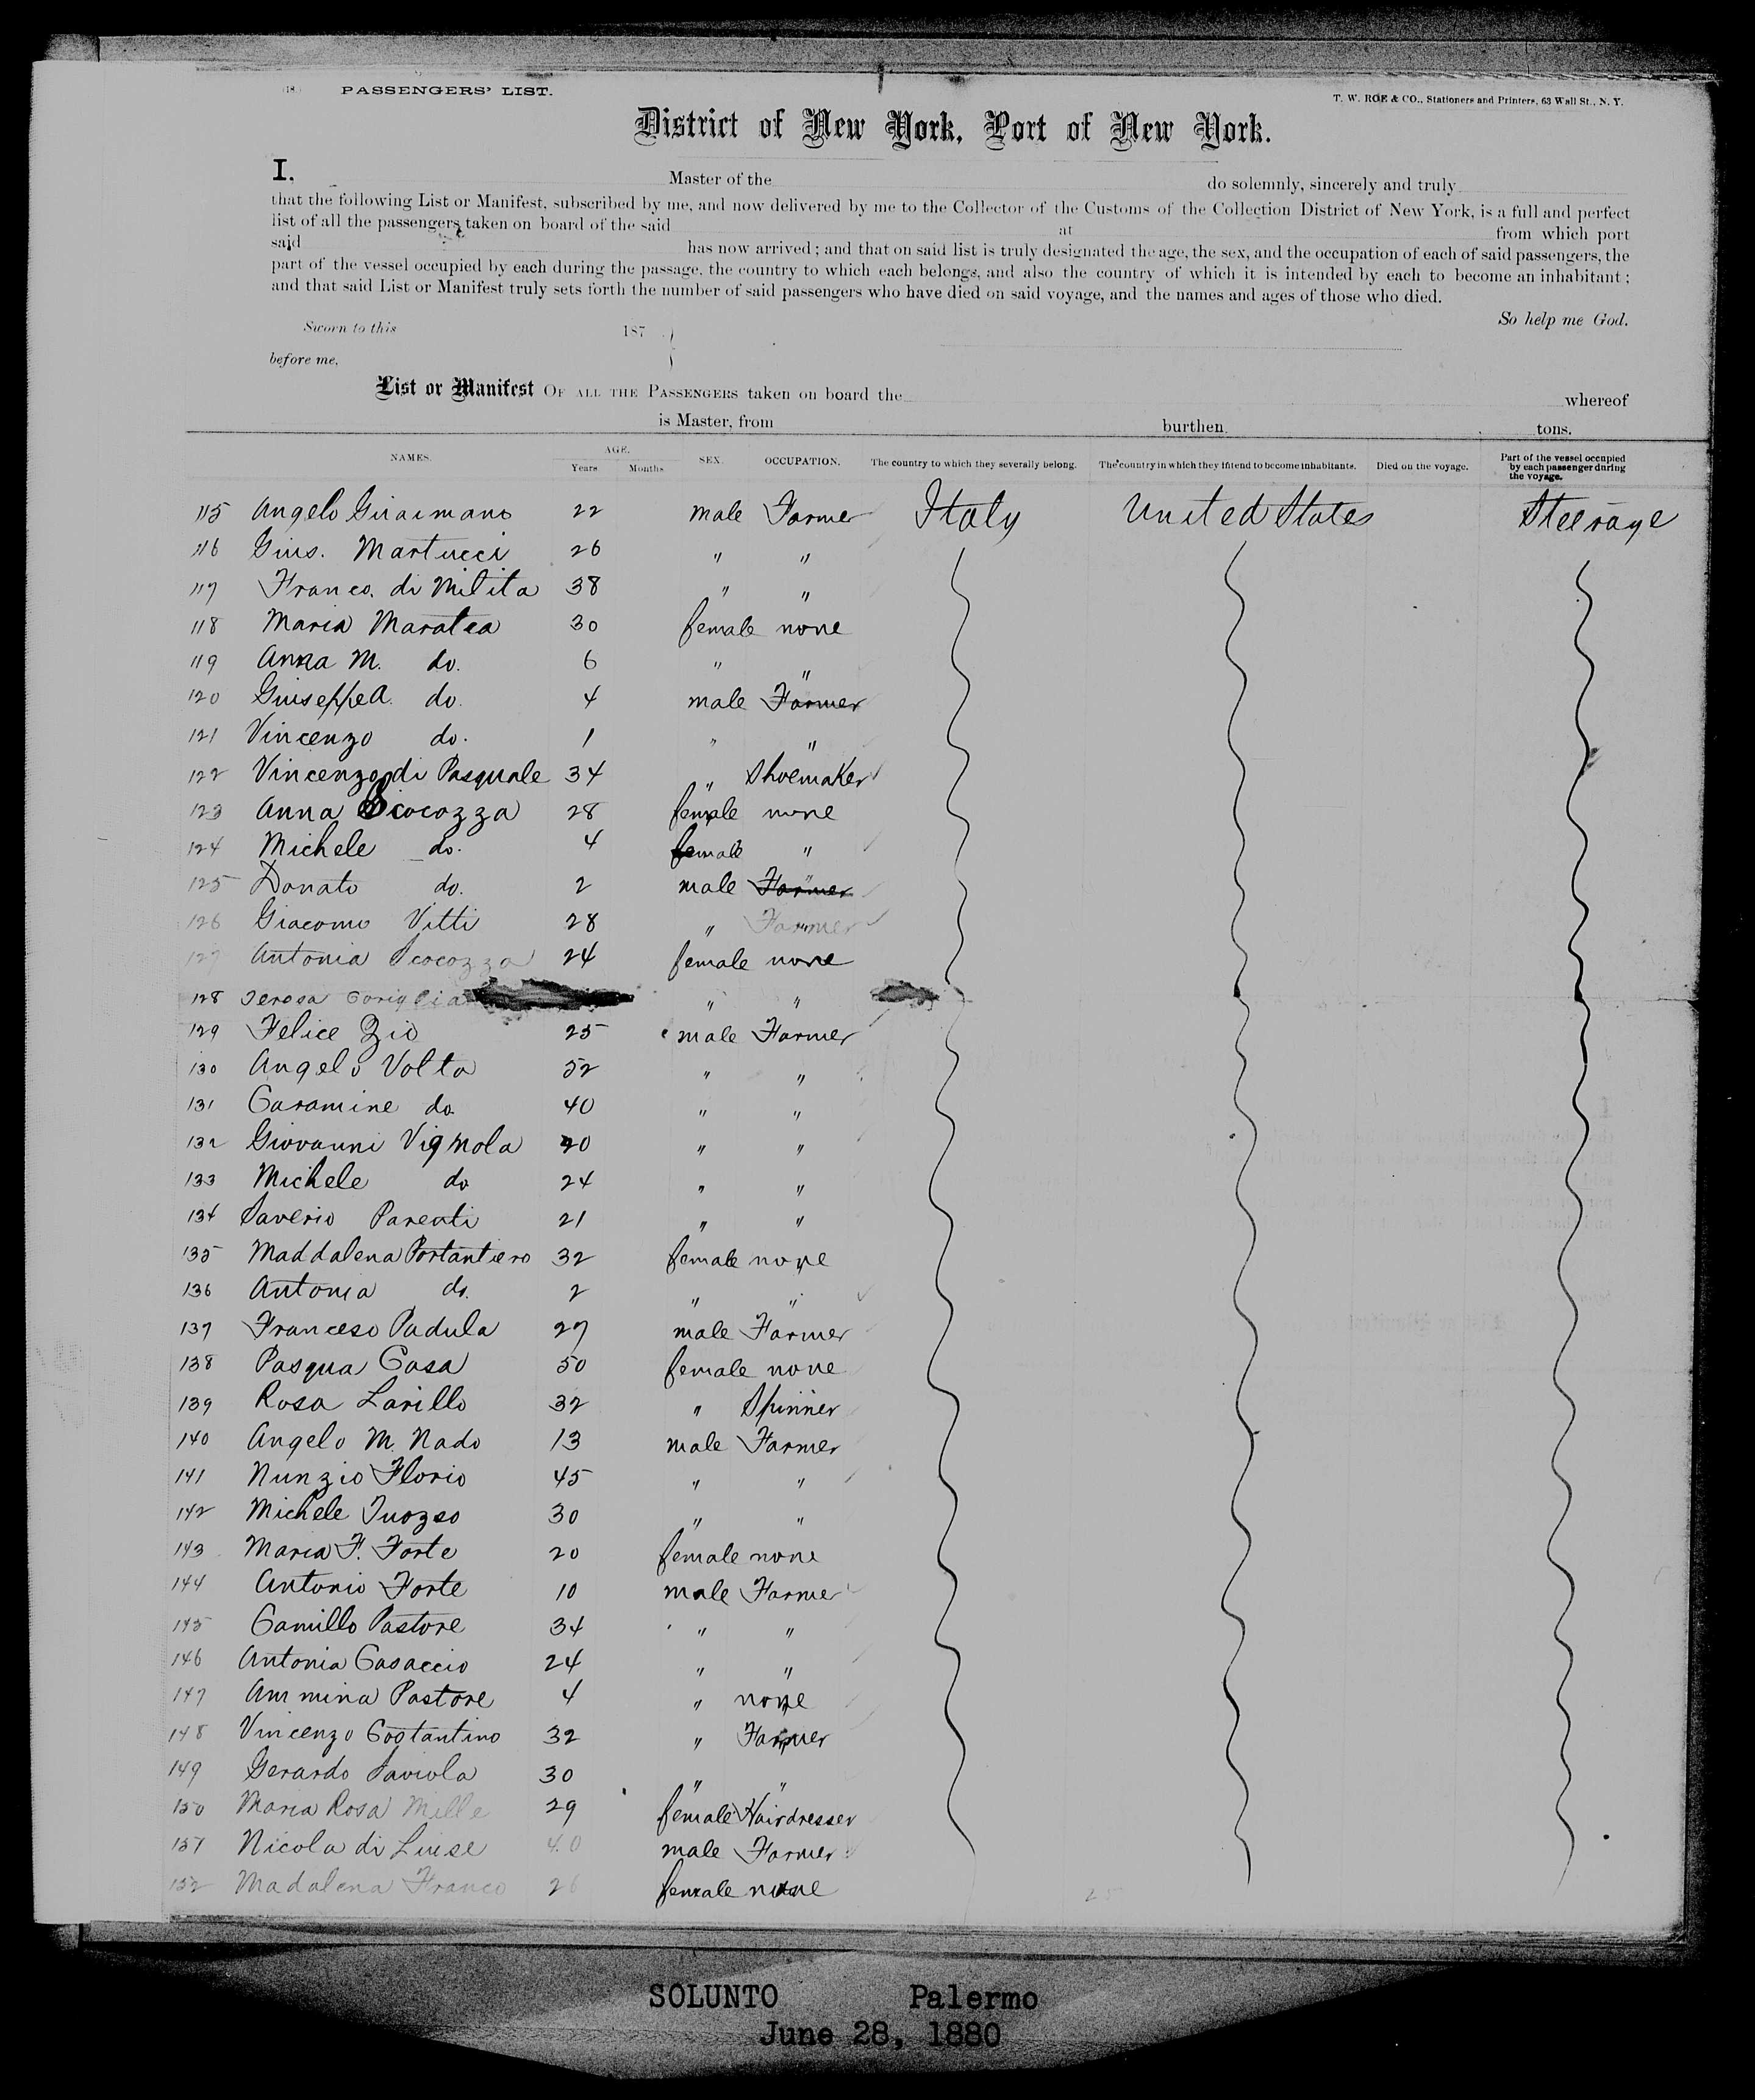 (18.) PASSENGERS' LIST.
T. W. ROE & CO., Stationers and Printers, 63 Wall St., N. Y.
District of New York, Port of New York.
I, Master of the do solemnly, sincerely and truly
that the following List or Manifest, subscribed by me, and now delivered by me to the Collector of the Customs of the Collection District of New York, is a full and perfect
list of all the passengers taken on board of the said at from which port
said has now arrived; and that on said list is truly designated the age, the sex, and the occupation of each of said passengers, the
part of the vessel occupied by each during the passage, the country to which each belongs, and also the country of which it is intended by each to become an inhabitant;
and that said List or Manifest truly sets forth the number of said passengers who have died on said voyage, and the names and ages of those who died.
So help me God.
Sworn to this 187
before me,
List or Manifest OF ALL THE PASSENGERS taken on board the whereof
is Master, from burthen tons.
NAMES. AGE. Years Months SEX. OCCUPATION. The country to which they severally belong. The country in which they intend to become inhabitants. Died on the voyage. Part of the vessel occupied by each passenger during the voyage.
115 Angelo Giraimano 22 male Farmer Italy United States Steerage
116 Gius. Martucci 26 " "
117 Franco. di Milita 38 " "
118 Maria Maratea 30 female none
119 Anna M. do. 6 " "
120 Giuseppe A. do. 4 male Farmer
121 Vincenzo do. 1 " "
122 Vincenzo di Pasquale 34 " Shoemaker
123 Anna Scocozza 28 female none
124 Michele do. 4 female "
125 Donato do. 2 male Farmer
126 Giacomo Vitti 28 " Farmer
127 Antonia Scocozza 24 female none
128 Teresa Coriglia " "
129 Felice Zio 25 male Farmer
130 Angelo Volta 52 " "
131 Caramine do. 40 " "
132 Giovanni Vignola 20 " "
133 Michele do 24 " "
134 Saverio Parenti 21 " "
135 Maddalena Portantiero 32 female none
136 Antonia do. 2 " "
137 Franceso Padula 27 male Farmer
138 Pasqua Casa 50 female none
139 Rosa Larillo 32 " Spinner
140 Angelo M. Nado 13 male Farmer
141 Nunzio Florio 45 " "
142 Michele Tuozzo 30 " "
143 Maria F. Forte 20 female none
144 Antonio Forte 10 male Farmer
145 Camillo Pastore 34 " "
146 Antonia Casaccio 24 " "
147 Ammina Pastore 4 " none
148 Vincenzo Costantino 32 " Farmer
149 Gerardo Saviola 30 " "
150 Maria Rosa Mille 29 female Hairdresser
151 Nicola di Luise 40 male Farmer
152 Madalena Franco 26 female none
25
SOLUNTO Palermo
June 28, 1880